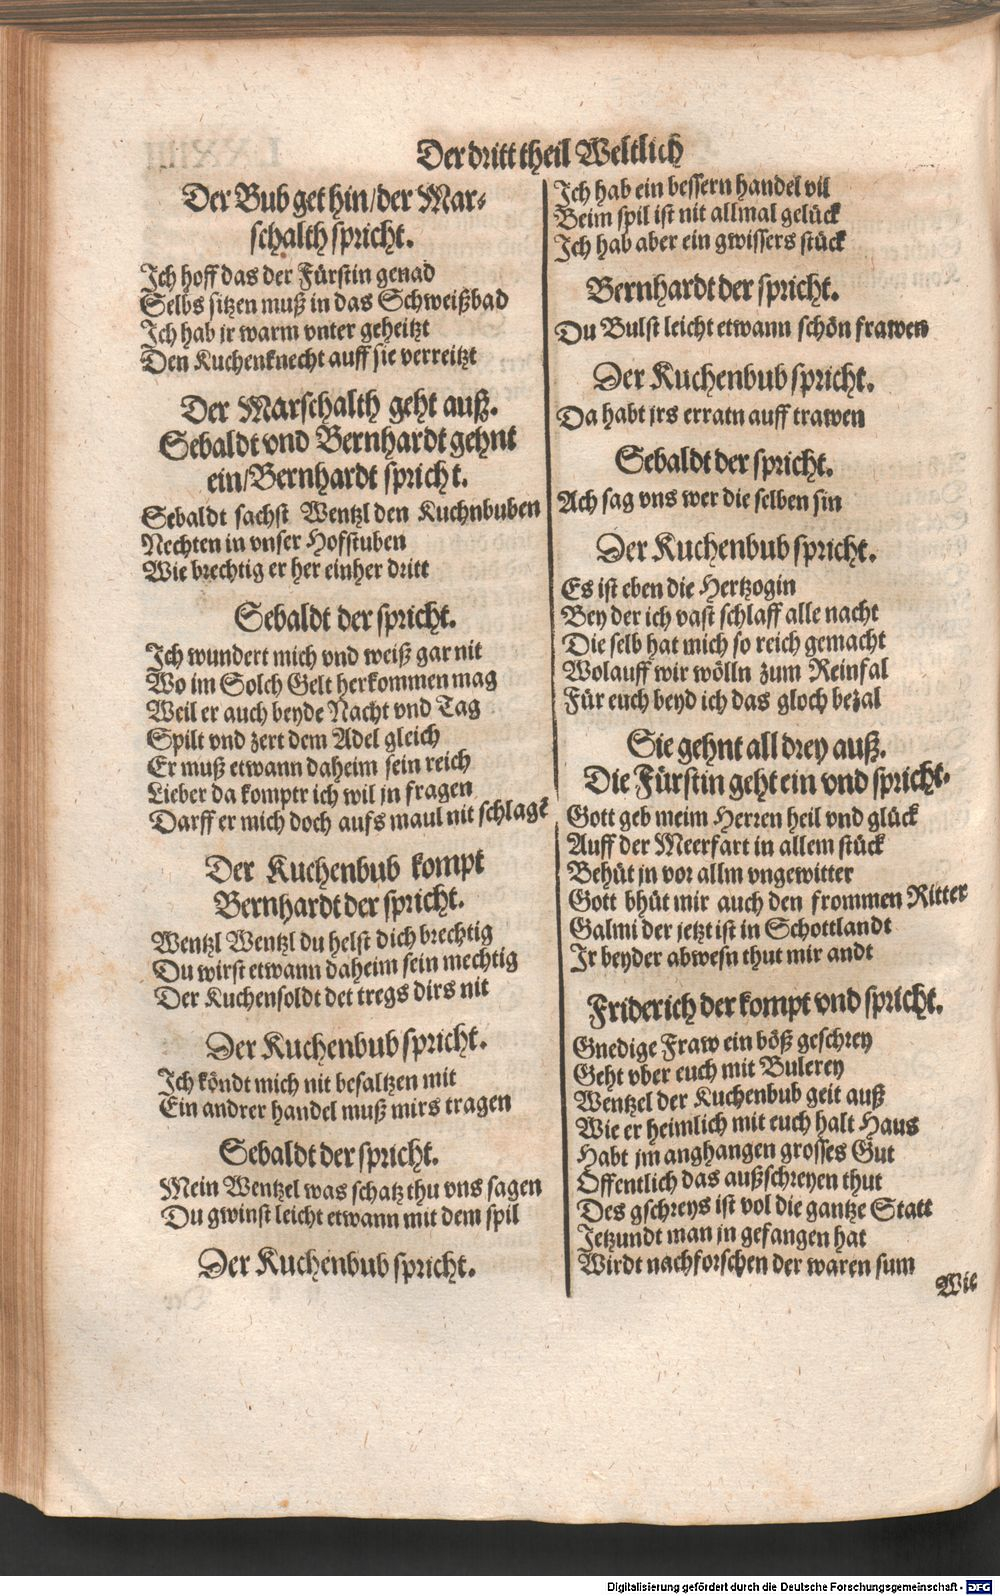 Der dritt theil Weltlich
Der Bub get hin/der Mar-
schalth spricht.
Ich hoff das der Fürstin genad
Selbs sitzen muß in das Schweißbad
Ich hab jr warm vnter geheitzt
Den Kuchenknecht auff sie verreitzt
Der Marschalth geht auß.
Sebaldt vnd Bernhardt gehnt
ein/Bernhardt spricht.
Sebaldt sachst Wentzl den Kuchnbuben
Nechten in vnser Hofstuben
Wie brechtig er her einher dritt
Sebaldt der spricht.
Ich wundert mich vnd weiß gar nit
Wo im Solch Gelt herkommen mag
Weil er auch beyde Nacht vnd Tag
Spilt vnd zert dem Adel gleich
Er muß etwann daheim sein reich
Lieber da komptr ich wil jn fragen
Darff er mich doch aufs maul nit schlagē
Der Kuchenbub kompt
Bernhardt der spricht.
Wentzl Wentzl du helst dich brechtig
Du wirst etwann daheim sein mechtig
Der Kuchensoldt det tregs dirs nit
Der Kuchenbub spricht.
Ich köndt mich nit besaltzen mit
Ein andrer handel muß mirs tragen
Sebaldt der spricht.
Mein Wentzel was schatz thu vns sagen
Du gwinst leicht etwann mit dem spil
Der Kuchenbub spricht.
Ich hab ein bessern handel vil
Beim spil ist nit allmal gelück
Ich hab aber ein gwissers stück
Bernhardt der spricht.
Du Bulst leicht etwann schön frawen
Der Kuchenbub spricht.
Da habt jrs erratn auff trawen
Sebaldt der spricht.
Ach sag vns wer die selben sin
Der Kuchenbub spricht.
Es ist eben die Hertzogin
Bey der ich vast schlaff alle nacht
Die selb hat mich so reich gemacht
Wolauff wir wölln zum Reinfal
Für euch beyd ich das gloch bezal
Sie gehnt all drey auß.
Die Fürstin geht ein vnd spricht.
Gott geb meim Herren heil vnd glück
Auff der Meerfart in allem stück
Behüt jn vor allm vngewitter
Gott bhüt mir auch den frommen Ritter
Galmi der jetzt ist in Schottlandt
Jr beyder abwesn thut mir andt
Friderich der kompt vnd spricht.
Gnedige Fraw ein böß geschrey
Geht vber euch mit Bulerey
Wentzel der Kuchenbub geit auß
Wie er heimlich mit euch halt Haus
Habt jm anghangen grosses Gut
Offentlich das außschreyen thut
Des gschreys ist vol die gantze Statt
Jetzundt man jn gefangen hat
Wirdt nachforschen der waren sum
Wie
Digitalisierung gefördert durch die Deutsche Forschungsgemeinschaft - DFG